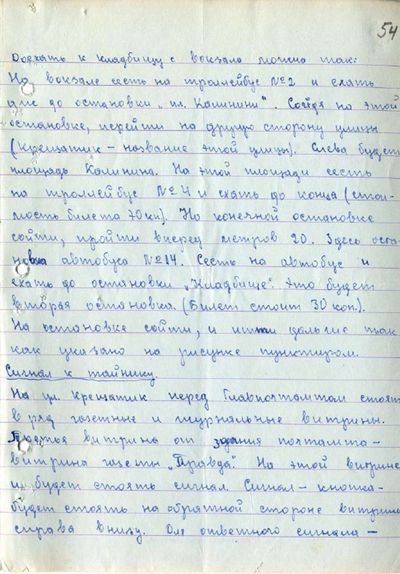 54
Доехать к кладбищу с вокзала можно так:
На вокзале сесть на троллейбус №2 и ехать
до остановки „пл. Калинина". Сойдя на этой
остановке, перейти на другую сторону улицы
(Крещатик – название этой улицы). Слева будет
площадь Калинина. На этой площади сесть
на троллейбус №4 и ехать до конца (стои-
мость билета 40 коп). На конечной остановке
сойти, пройти вперед метров 20. Здесь оста-
новка автобуса №14. Сесть на автобус и
ехать до остановки „Кладбище". Это будет
вторая остановка. (Билет стоит 30 коп.)
На остановке сойти, и идти дальше так
как указано на рисунке пунктиром.
Сигнал к тайнику.
На ул. Крещатик перед Главпочтамтом стоят
в ряд газетные и журнальные витрины.
Третья витрина от здания почтамта –
витрина газеты „Правда". На этой витрине
и будет стоять сигнал. Сигнал – кнопка –
будет стоять на обратной стороне витрины
справа внизу. Для ответного сигнала –